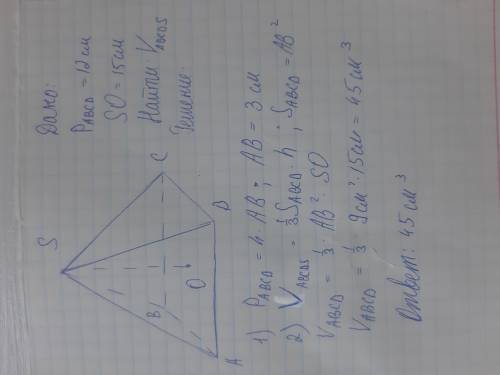 Дано:
P ABCD = 12 см
SO = 15 см
Найти: V ABCDS
Решение:
S
C
B
O
D
A
1) P ABCD = 4 · AB; AB = 3 см
2) V ABCDS = 1/3 S ABCD · h; S ABCD = AB²
V ABCD = 1/3 · AB² · SO
V ABCD = 1/3 · 9см² · 15см = 45 см³
Ответ: 45 см³